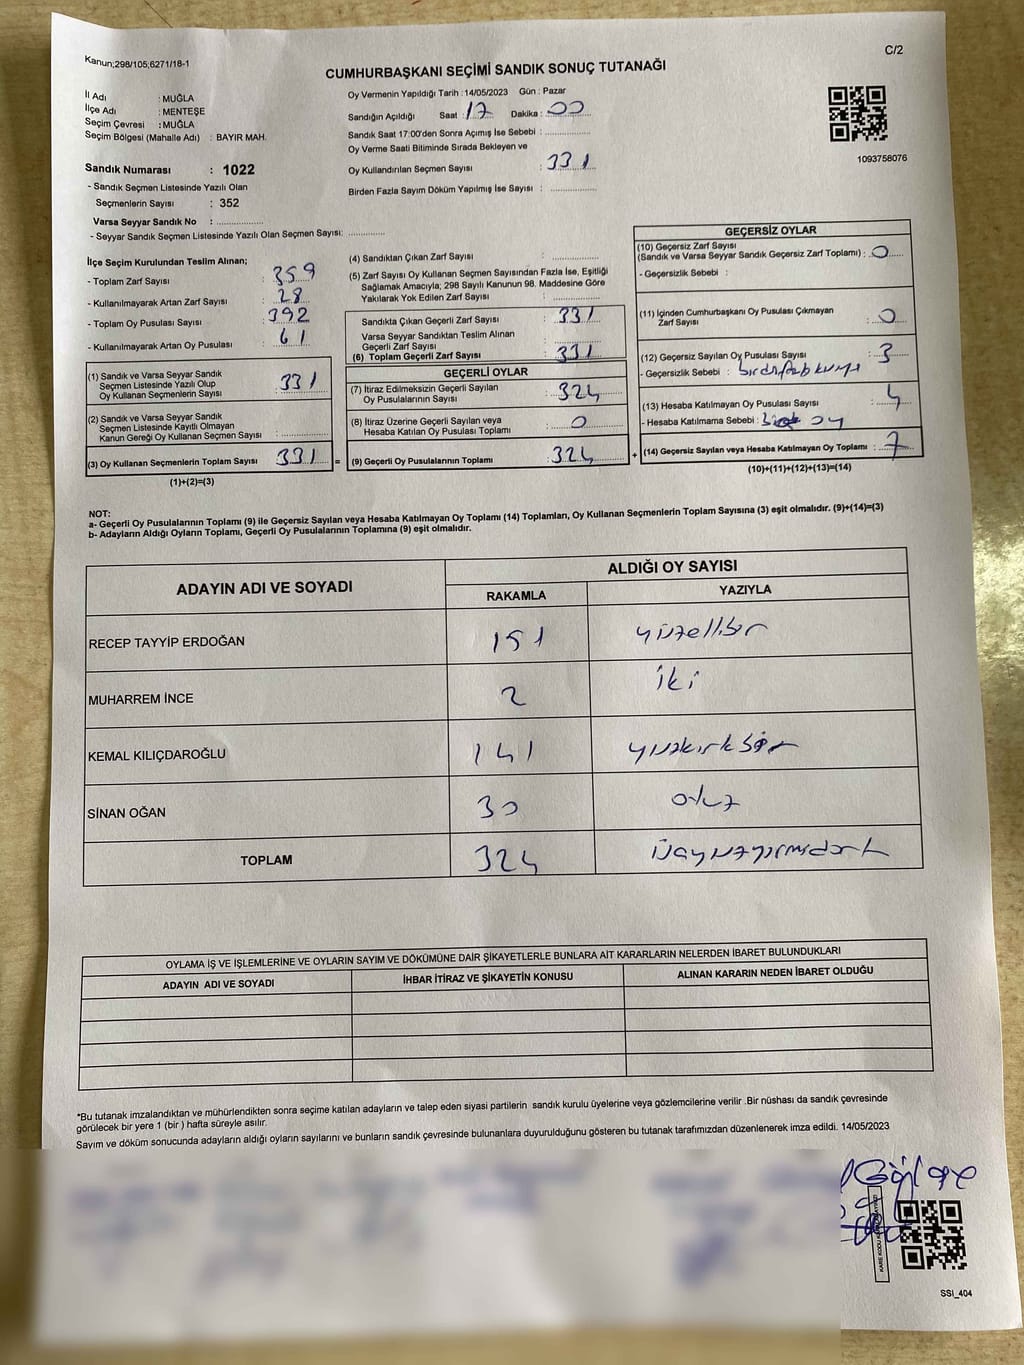 Kanun;298/105;6271/18-1
C/2
CUMHURBAŞKANI SEÇİMİ SANDIK SONUÇ TUTANAĞI
İl Adı : MUĞLA
İlçe Adı : MENTEŞE
Seçim Çevresi : MUĞLA
Seçim Bölgesi (Mahalle Adı) : BAYIR MAH.
Sandık Numarası : 1022
- Sandık Seçmen Listesinde Yazılı Olan
Seçmenlerin Sayısı : 352
Varsa Seyyar Sandık No :
- Seyyar Sandık Seçmen Listesinde Yazılı Olan Seçmen Sayısı:
Oy Vermenin Yapıldığı Tarih :14/05/2023 Gün : Pazar
Sandığın Açıldığı Saat : 17 Dakika : 00
Sandık Saat 17:00'den Sonra Açımış İse Sebebi :
Oy Verme Saati Bitiminde Sırada Bekleyen ve
Oy Kullandırılan Seçmen Sayısı : 331
Birden Fazla Sayım Döküm Yapılmış İse Sayısı :
1093758076
İlçe Seçim Kurulundan Teslim Alınan;
- Toplam Zarf Sayısı : 359
- Kullanılmayarak Artan Zarf Sayısı : 28
- Toplam Oy Pusulası Sayısı : 392
- Kullanılmayarak Artan Oy Pusulası : 61
(1) Sandık ve Varsa Seyyar Sandık
Seçmen Listesinde Yazılı Olup
Oy Kullanan Seçmenlerin Sayısı : 331
(2) Sandık ve Varsa Seyyar Sandık
Seçmen Listesinde Kayıtlı Olmayan
Kanun Gereği Oy Kullanan Seçmen Sayısı :
(3) Oy Kullanan Seçmenlerin Toplam Sayısı : 331
(1)+(2)=(3)
(4) Sandıktan Çıkan Zarf Sayısı :
(5) Zarf Sayısı Oy Kullanan Seçmen Sayısından Fazla İse, Eşitliği
Sağlamak Amacıyla; 298 Sayılı Kanunun 98. Maddesine Göre
Yakılarak Yok Edilen Zarf Sayısı :
Sandıkta Çıkan Geçerli Zarf Sayısı : 331
Varsa Seyyar Sandıktan Teslim Alınan
Geçerli Zarf Sayısı :
(6) Toplam Geçerli Zarf Sayısı : 331
GEÇERLİ OYLAR
(7) İtiraz Edilmeksizin Geçerli Sayılan
Oy Pusulalarının Sayısı : 324
(8) İtiraz Üzerine Geçerli Sayılan veya
Hesaba Katılan Oy Pusulası Toplamı : 0
= (9) Geçerli Oy Pusulalarının Toplamı : 324
GEÇERSİZ OYLAR
(10) Geçersiz Zarf Sayısı
(Sandık ve Varsa Seyyar Sandık Geçersiz Zarf Toplamı) : 0
- Geçersizlik Sebebi :
(11) İçinden Cumhurbaşkanı Oy Pusulası Çıkmayan
Zarf Sayısı : 0
(12) Geçersiz Sayılan Oy Pusulası Sayısı : 3
- Geçersizlik Sebebi :
(13) Hesaba Katılmayan Oy Pusulası Sayısı : 4
- Hesaba Katılmama Sebebi : oy
+ (14) Geçersiz Sayılan veya Hesaba Katılmayan Oy Toplamı : 7
(10)+(11)+(12)+(13)=(14)
NOT:
a- Geçerli Oy Pusulalarının Toplamı (9) ile Geçersiz Sayılan veya Hesaba Katılmayan Oy Toplamı (14) Toplamları, Oy Kullanan Seçmenlerin Toplam Sayısına (3) eşit olmalıdır. (9)+(14)=(3)
b- Adayların Aldığı Oyların Toplamı, Geçerli Oy Pusulalarının Toplamına (9) eşit olmalıdır.
ADAYIN ADI VE SOYADI
ALDIĞI OY SAYISI
RAKAMLA YAZIYLA
RECEP TAYYİP ERDOĞAN 151 yüzellibir
MUHARREM İNCE 2 iki
KEMAL KILIÇDAROĞLU 141 yüzkırkbir
SİNAN OĞAN 30 otuz
TOPLAM 324 üçyüzyirmidört
OYLAMA İŞ VE İŞLEMLERİNE VE OYLARIN SAYIM VE DÖKÜMÜNE DAİR ŞİKAYETLERLE BUNLARA AİT KARARLARIN NELERDEN İBARET BULUNDUKLARI
ADAYIN ADI VE SOYADI İHBAR İTİRAZ VE ŞİKAYETİN KONUSU ALINAN KARARIN NEDEN İBARET OLDUĞU
*Bu tutanak imzalandıktan ve mühürlendikten sonra seçime katılan adayların ve talep eden siyasi partilerin sandık kurulu üyelerine veya gözlemcilerine verilir .Bir nüshası da sandık çevresinde
görülecek bir yere 1 (bir ) hafta süreyle asılır.
Sayım ve döküm sonucunda adayların aldığı oyların sayılarını ve bunların sandık çevresinde bulunanlara duyurulduğunu gösteren bu tutanak tarafımızdan düzenlenerek imza edildi. 14/05/2023
SSI_404